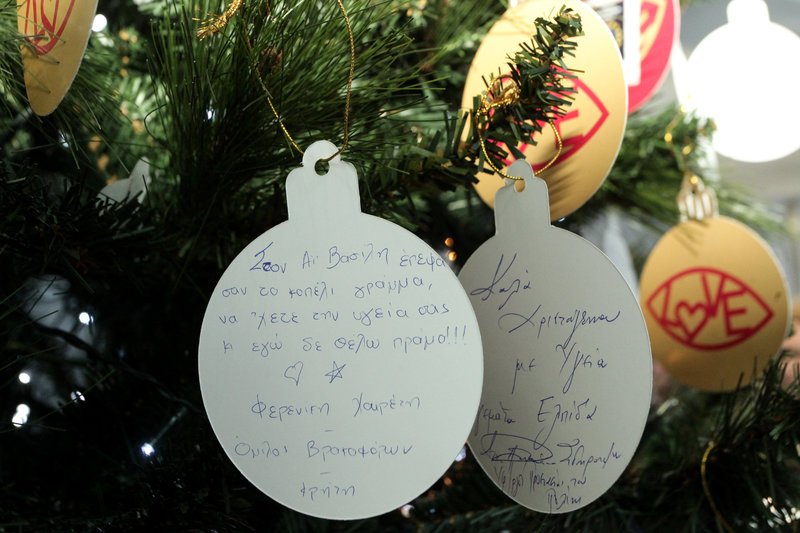 Στον Αϊ Βασίλη έπεψα
σαν το κοπέλι γράμμα,
να 'χετε την υγειά σας
κι εγώ δε θέλω πράμα!!!
Φερενίκη Χαιρέτη
-
Όμιλοι Βρακοφόρων
-
Κρήτη
Καλά
Χριστούγεννα
με Υγεία
Ελπίδα
LOVE